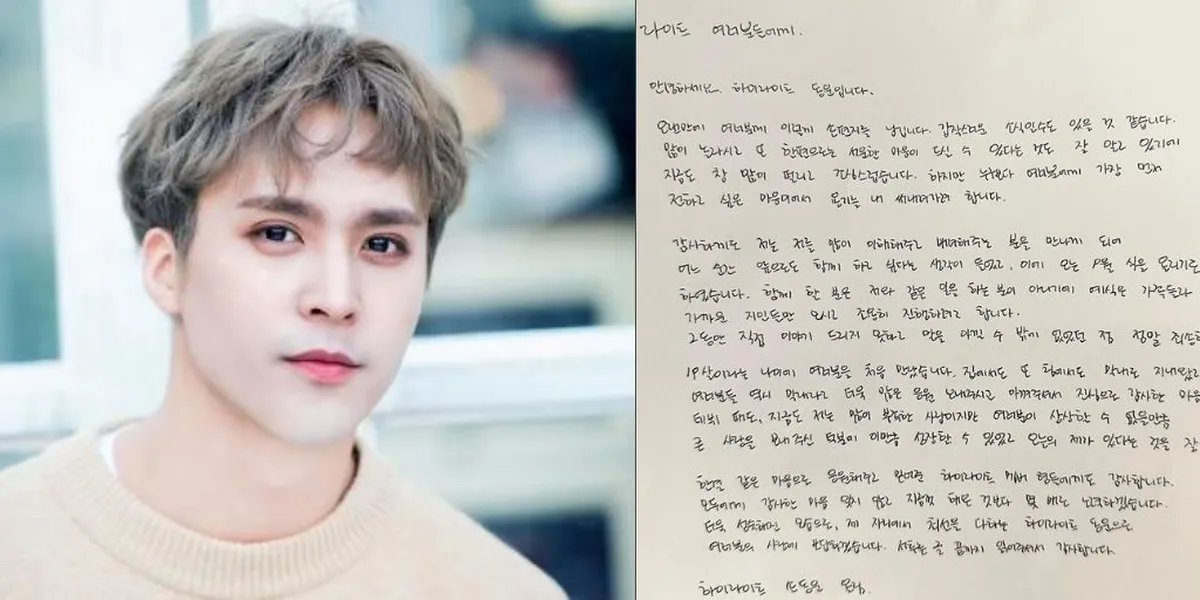 라이트 여러분들에게.
안녕하세요. 하이라이트 동운입니다.
오랜만에 여러분께 이렇게 손편지를 남깁니다. 갑작스러운 소식일수도 있을 것 같습니다.
많이 놀라시고 또 한편으로는 서운한 마음이 드실 수 있다는 것도 잘 알고 있기에
지금도 참 많이 떨리고 조심스럽습니다. 하지만 누구보다 여러분에게 가장 먼저
전하고 싶은 마음에서 용기를 내 써내려가려 합니다.
감사하게도 저는 저를 많이 이해해주고 배려해주는 분을 만나게 되어
어느 순간 앞으로도 함께 하고 싶다는 생각이 들었고, 이에 오는 9월 식을 올리기로
하였습니다. 함께 할 분은 저와 같은 일을 하는 분이 아니기에 예식은 가족들과
가까운 지인들만 모시고 조용히 진행하려고 합니다.
그동안 직접 이야기 드리지 못하고 말을 아낄 수 밖에 없었던 점 정말 죄송하
19살이라는 나이에 여러분을 처음 만났습니다. 집에서도 또 팀에서도 막내로 지내왔고
여러분들 역시 막내라고 더욱 많은 응원 보내주시고 아껴주셔서 진심으로 감사한 마음
데뷔 때도, 지금도 저는 많이 부족한 사람이지만 여러분이 상상할 수 없을만큼
큰 사랑을 보내주신 덕분에 이만큼 성장할 수 있었고 오늘의 제가 있다는 것을 잘
한결 같은 마음으로 응원해주고 안아준 하이라이트 멤버 형들에게도 감사합니다.
모두에게 감사한 마음 잊지 않고 지금껏 해온 것보다 몇 배로 노력하겠습니다.
더욱 성숙해진 모습으로, 제 자리에서 최선을 다하는 하이라이트 동운으로
여러분의 사랑에 보답하겠습니다. 서투른 글 끝까지 읽어주셔서 감사합니다.
하이라이트 손동운 올림.